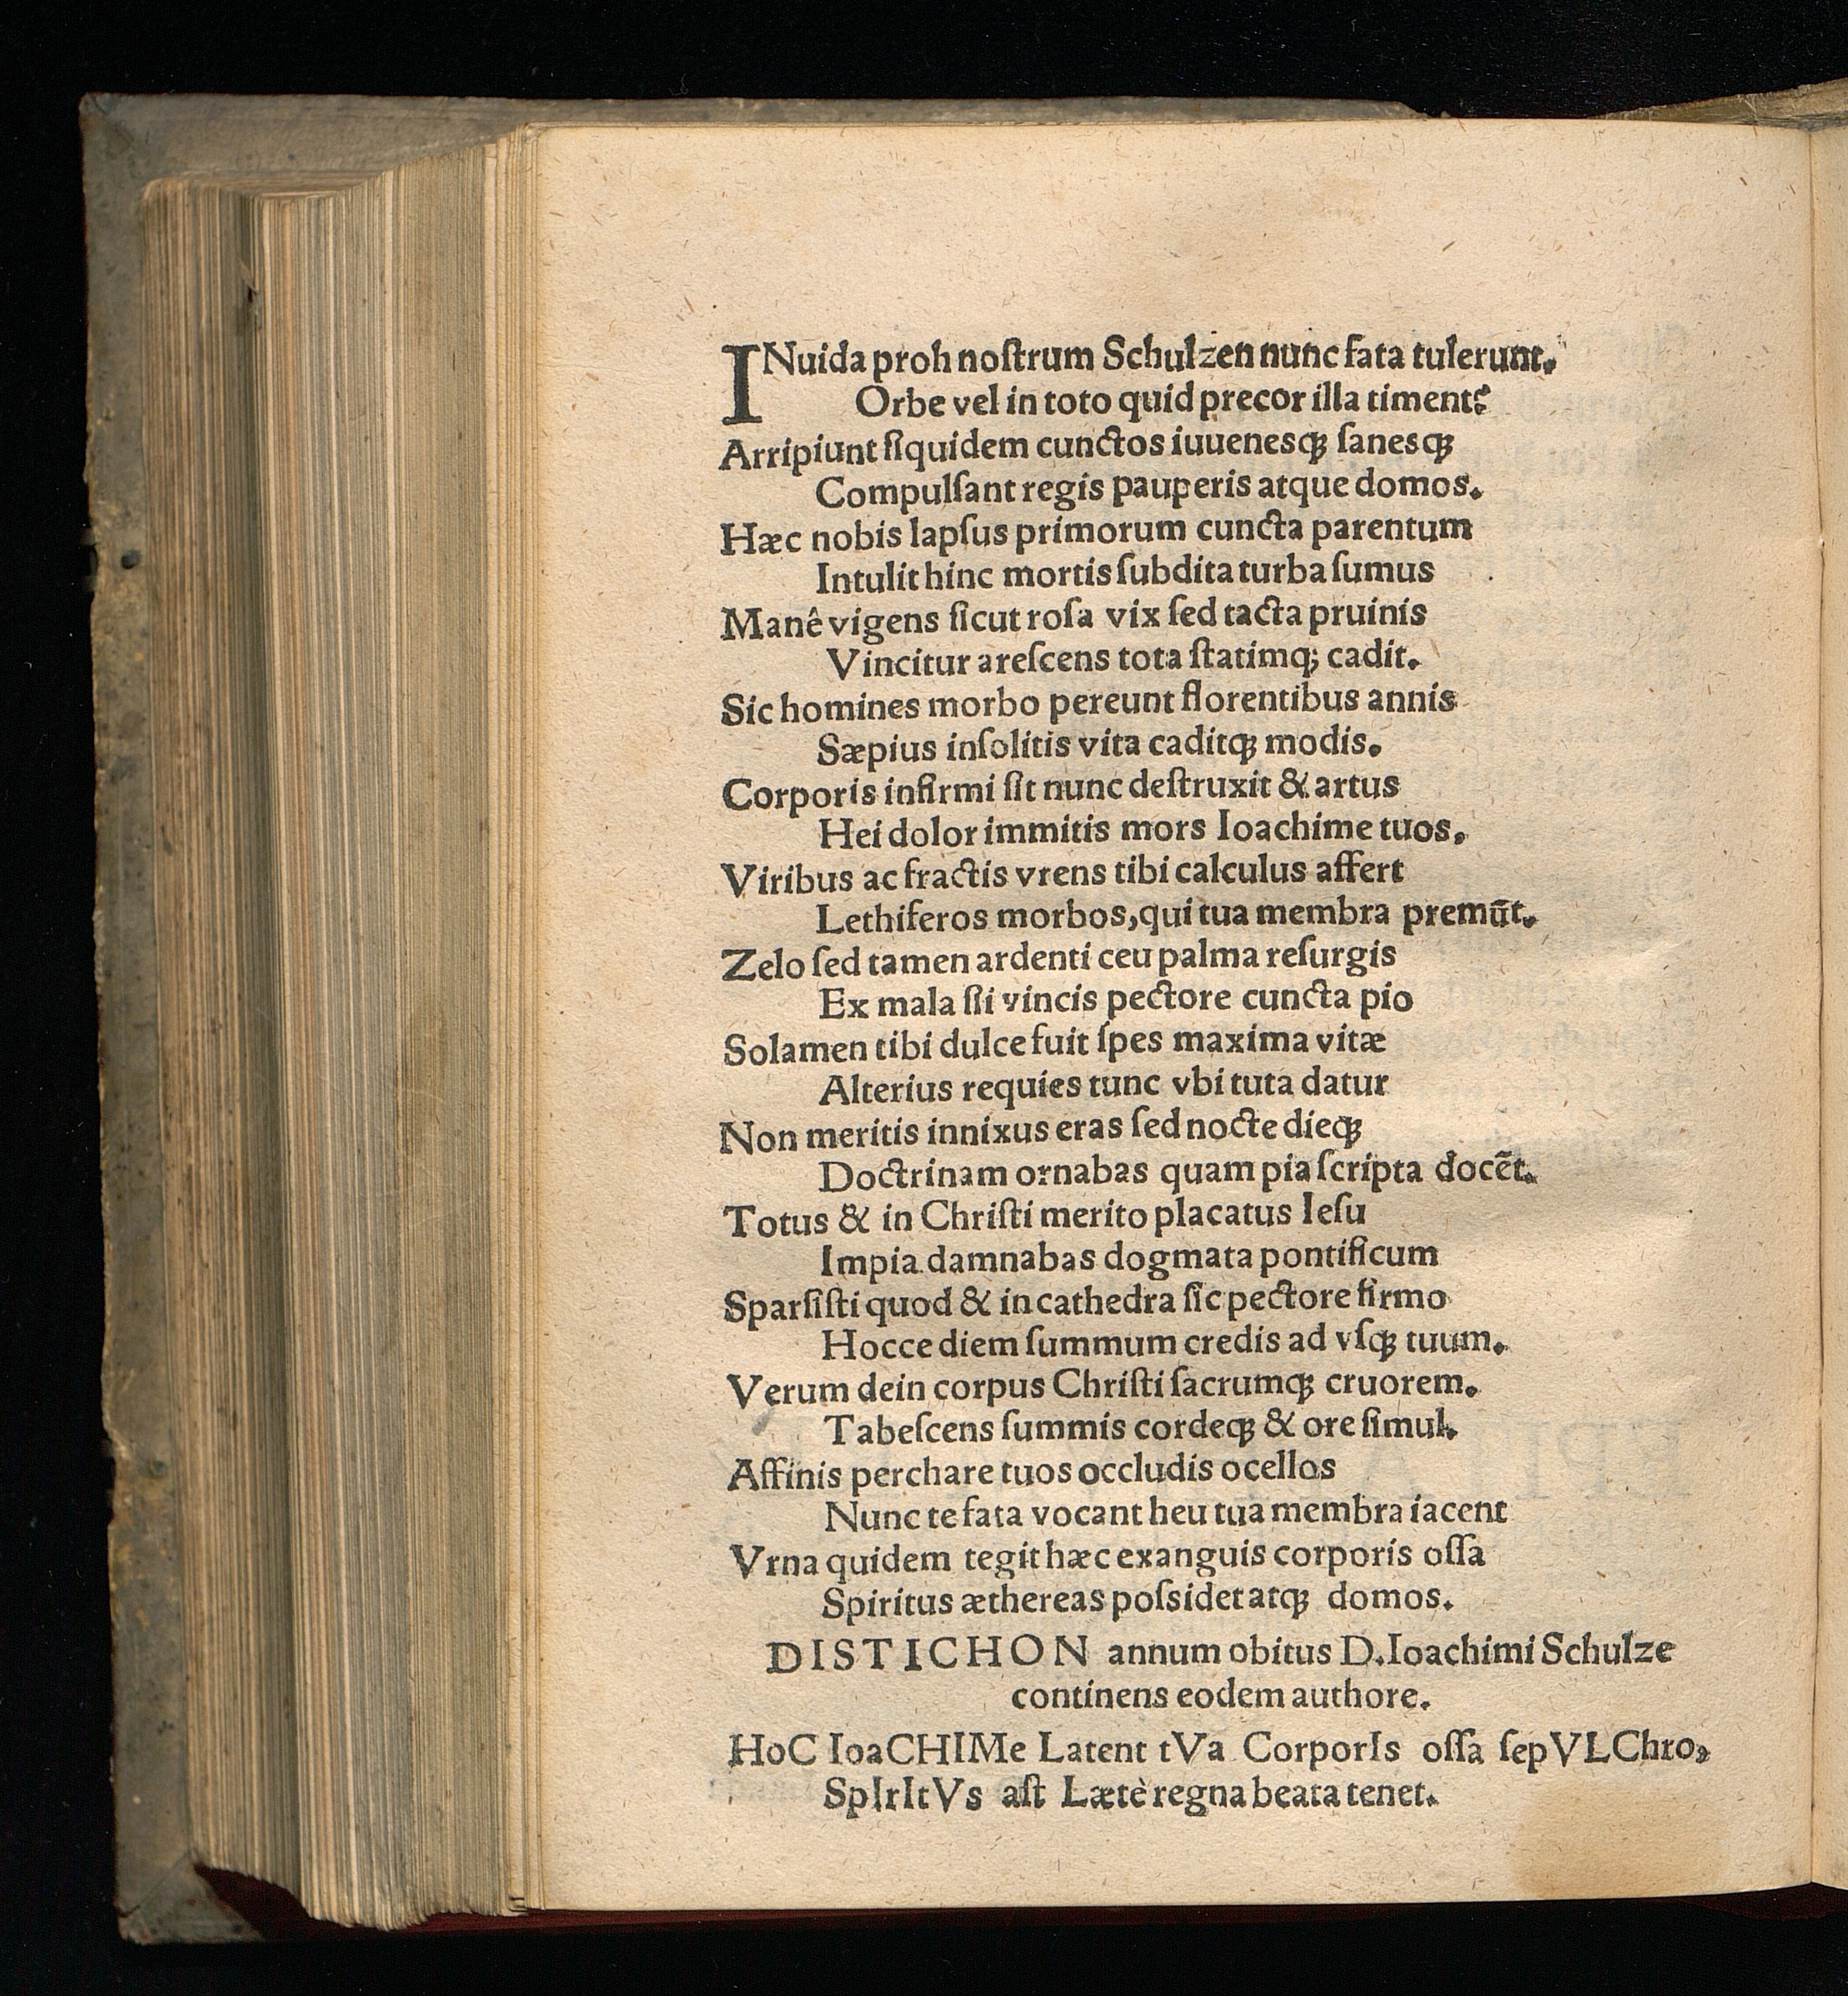 INuida proh noſtrum Schulzen nunc fata tulerunt.
Orbe vel in toto quid precor illa timent?
Arripiunt ſiquidem cunctos iuuenesq́ꝫ ſanesq́ꝫ
Compulſant regis pauperis atque domos.
Hæc nobis lapſus primorum cuncta parentum
Intulit hinc mortis ſubdita turba ſumus
Manê vigens ſicut roſa vix ſed tacta pruinis
Vincitur areſcens tota ſtatimq; cadit.
Sic homines morbo pereunt florentibus annis
Sæpius inſolitis vita caditq́ꝫ modis.
Corporis infirmi ſit nunc deſtruxit & artus
Hei dolor immitis mors Ioachime tuos.
Viribus ac fractis vrens tibi calculus affert
Lethiferos morbos, qui tua membra premūt.
Zelo ſed tamen ardenti ceu palma reſurgis
Ex mala ſti vincis pectore cuncta pio
Solamen tibi dulce fuit ſpes maxima vitæ
Alterius requies tunc vbi tuta datur
Non meritis innixus eras ſed nocte dieq́ꝫ
Doctrinam ornabas quam pia ſcripta docēt.
Totus & in Chriſti merito placatus Ieſu
Impia damnabas dogmata pontificum
Sparſiſti quod & in cathedra ſic pectore firmo
Hocce diem ſummum credis ad vſq́ꝫ tuum.
Verum dein corpus Chriſti ſacrumq́ꝫ cruorem.
Tabeſcens ſummis cordeq́ꝫ & ore ſimul.
Affinis perchare tuos occludis ocellos
Nunc te fata vocant heu tua membra iacent
Vrna quidem tegit hæc exanguis corporis oſſa
Spiritus æthereas poſsidet atq́ꝫ domos.
DISTICHON annum obitus D. Ioachimi Schulze
continens eodem authore.
HoC IoaCHIMe Latent tVa CorporIs oſſa ſepVLChro,
SpIrItVs aſt Lætè regna beata tenet.